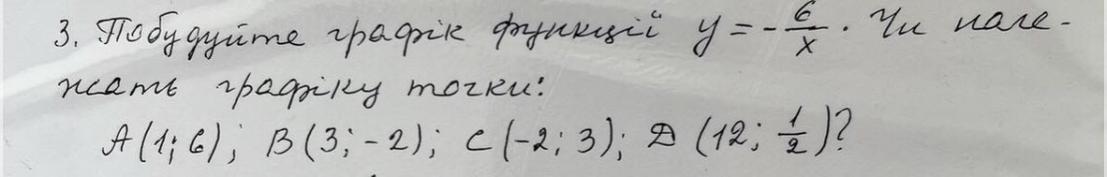 3. Побудуйте графік функції y = - 6/x. Чи нале-
жать графіку точки:
A(1; 6); B(3; -2); C(-2; 3); D(12; 1/2)?